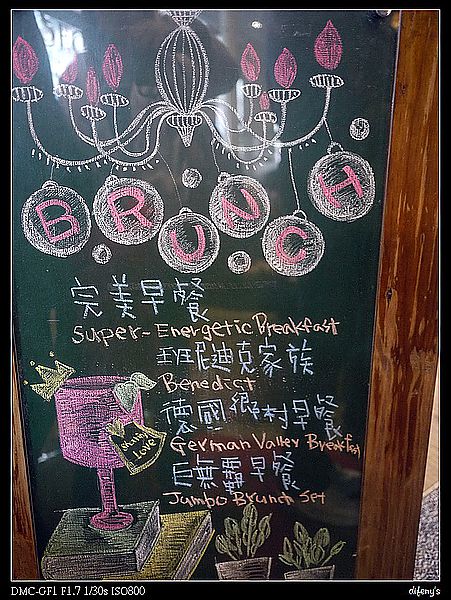 BRUNCH
完美早餐
Super-Energetic Breakfast
班尼迪克家族
Benedict
德國鄉村早餐
German Valley Breakfast
巨無霸早餐
Jumbo Brunch Set
DMC-GF1 F1.7 1/30s ISO800
difeny's